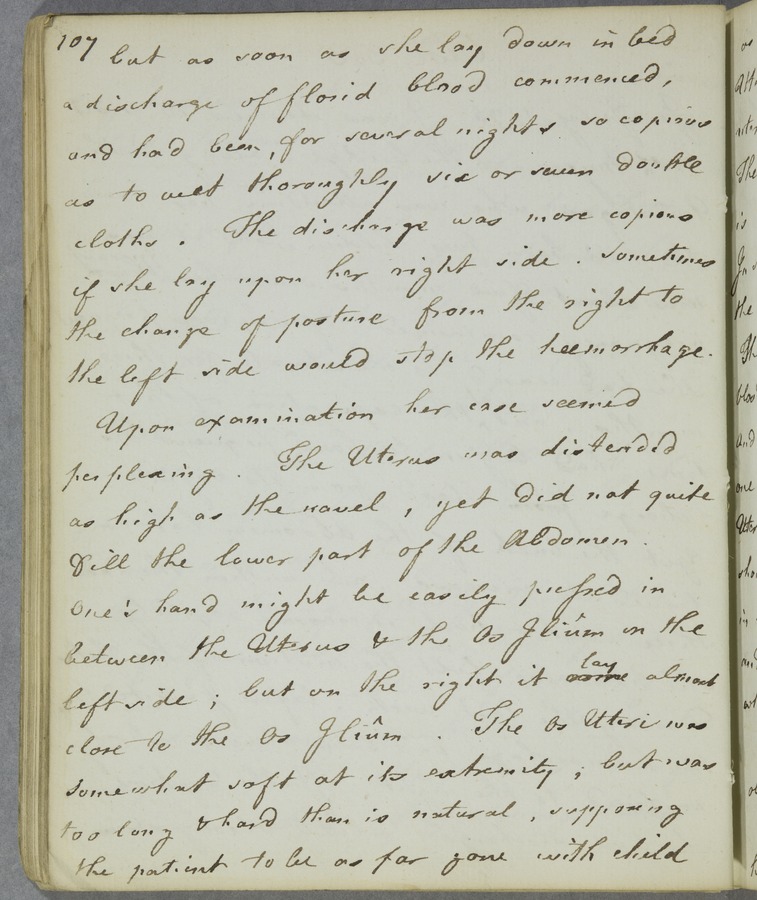 107
but as soon as she lay down in bed
a discharge of florid blood commenced,
and had been, for several nights so copious
as to wet thoroughly six or seven double
cloths. The discharge was more copious
if she lay upon her right side. Sometimes
the change of posture from the right to
the left side would stop the heemorrhage.
Upon examination her case seemed
perplexing. The Uterus was distended
as high as the navel, yet did not quite
fill the lower part of the Abdomen.
One's hand might be easily pressed in
between the Uterus & the Os Iliûm on the
left side; but on the right it lay almost
close to the Os Iliûm. The Os Uteri was
somewhat soft at its extremity; but was
too long & hard than is natural, supposing
the patient to be as far gone with child